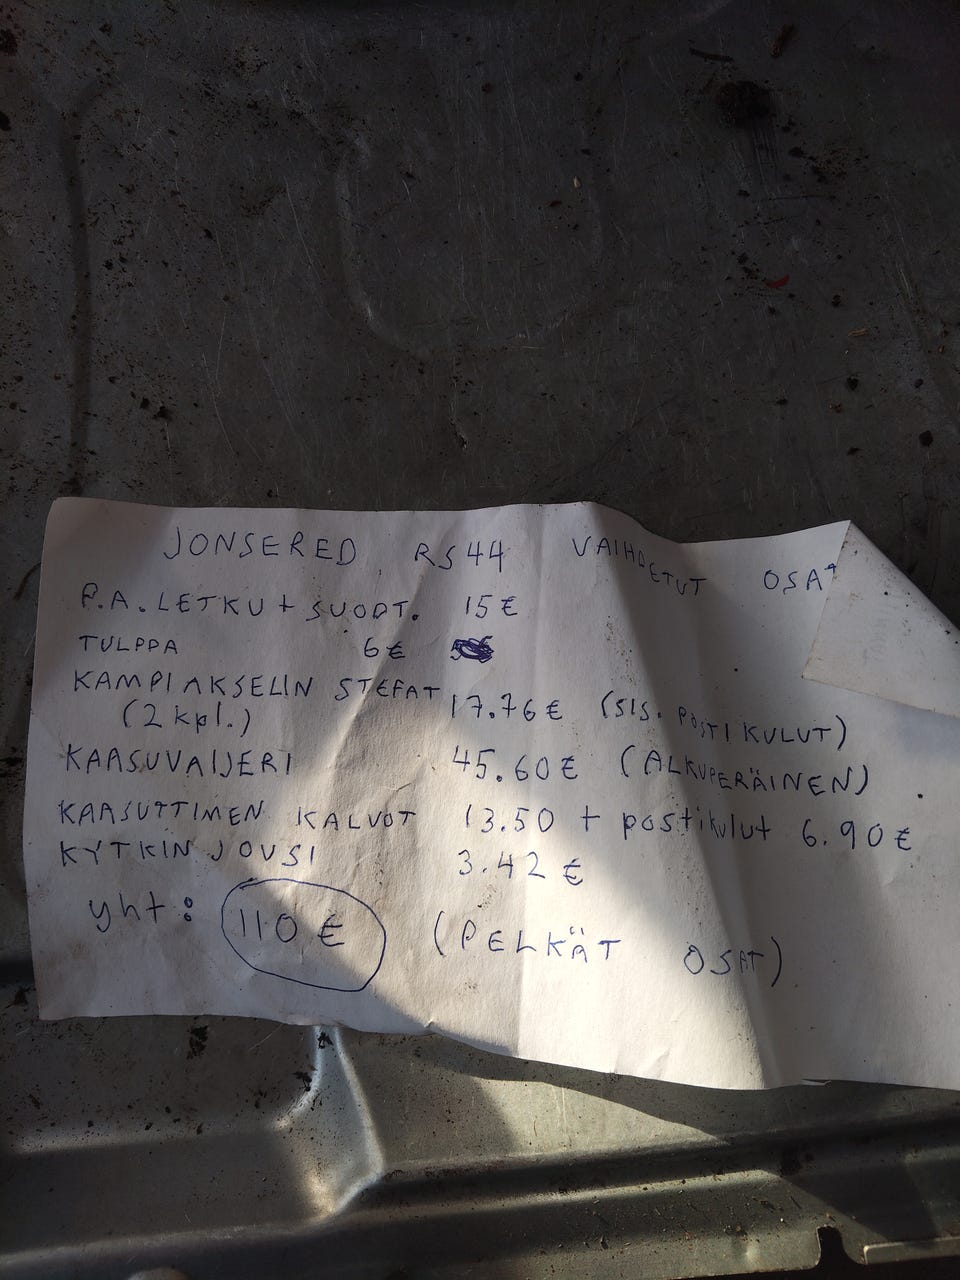 JONSERED RS44 VAIHDETUT OSAT
P.A. LETKU + SUODT. 15 €
TULPPA 6 €
KAMPIAKSELIN STEFAT 17.76 € (SIS. POSTIKULUT)
(2 kpl.)
KAASUVAIJERI 45.60 € (ALKUPERÄINEN)
KAASUTTIMEN KALVOT 13.50 + postikulut 6.90 €
KYTKIN JOUSI 3.42 €
yht: 110 € (PELKÄT OSAT)